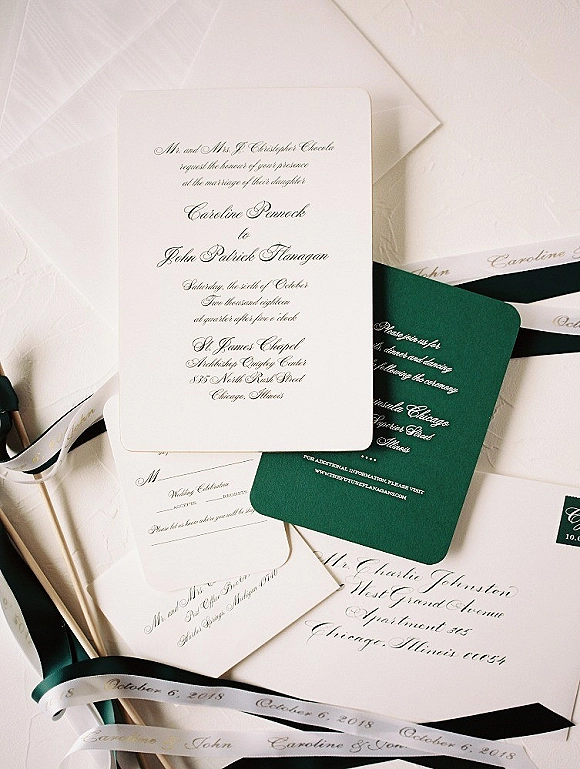 Mr. and Mrs. J. Christopher Chocola
request the honour of your presence
at the marriage of their daughter
Caroline Pennock
to
John Patrick Flanagan
Saturday, the sixth of October
Two thousand eighteen
at quarter after five o'clock
St. James Chapel
Archbishop Quigley Center
835 North Rush Street
Chicago, Illinois
John Caroline
Please join us for
dinner and dancing
following the ceremony
Chicago
Superior Street
Illinois
FOR ADDITIONAL INFORMATION, PLEASE VISIT
WWW.THEFUTUREFLANAGANS.COM
M
Wedding Celebration
ACCEPTS
Please let us know where you will be
Mr. and Mrs.
Post Office
Harbor Springs, Michigan
Mr. Charlie Johnston
West Grand Avenue
Apartment 305
Chicago, Illinois 60654
October 6, 2018 October 6, 2018
Caroline & John Caroline & John October 6, 2018